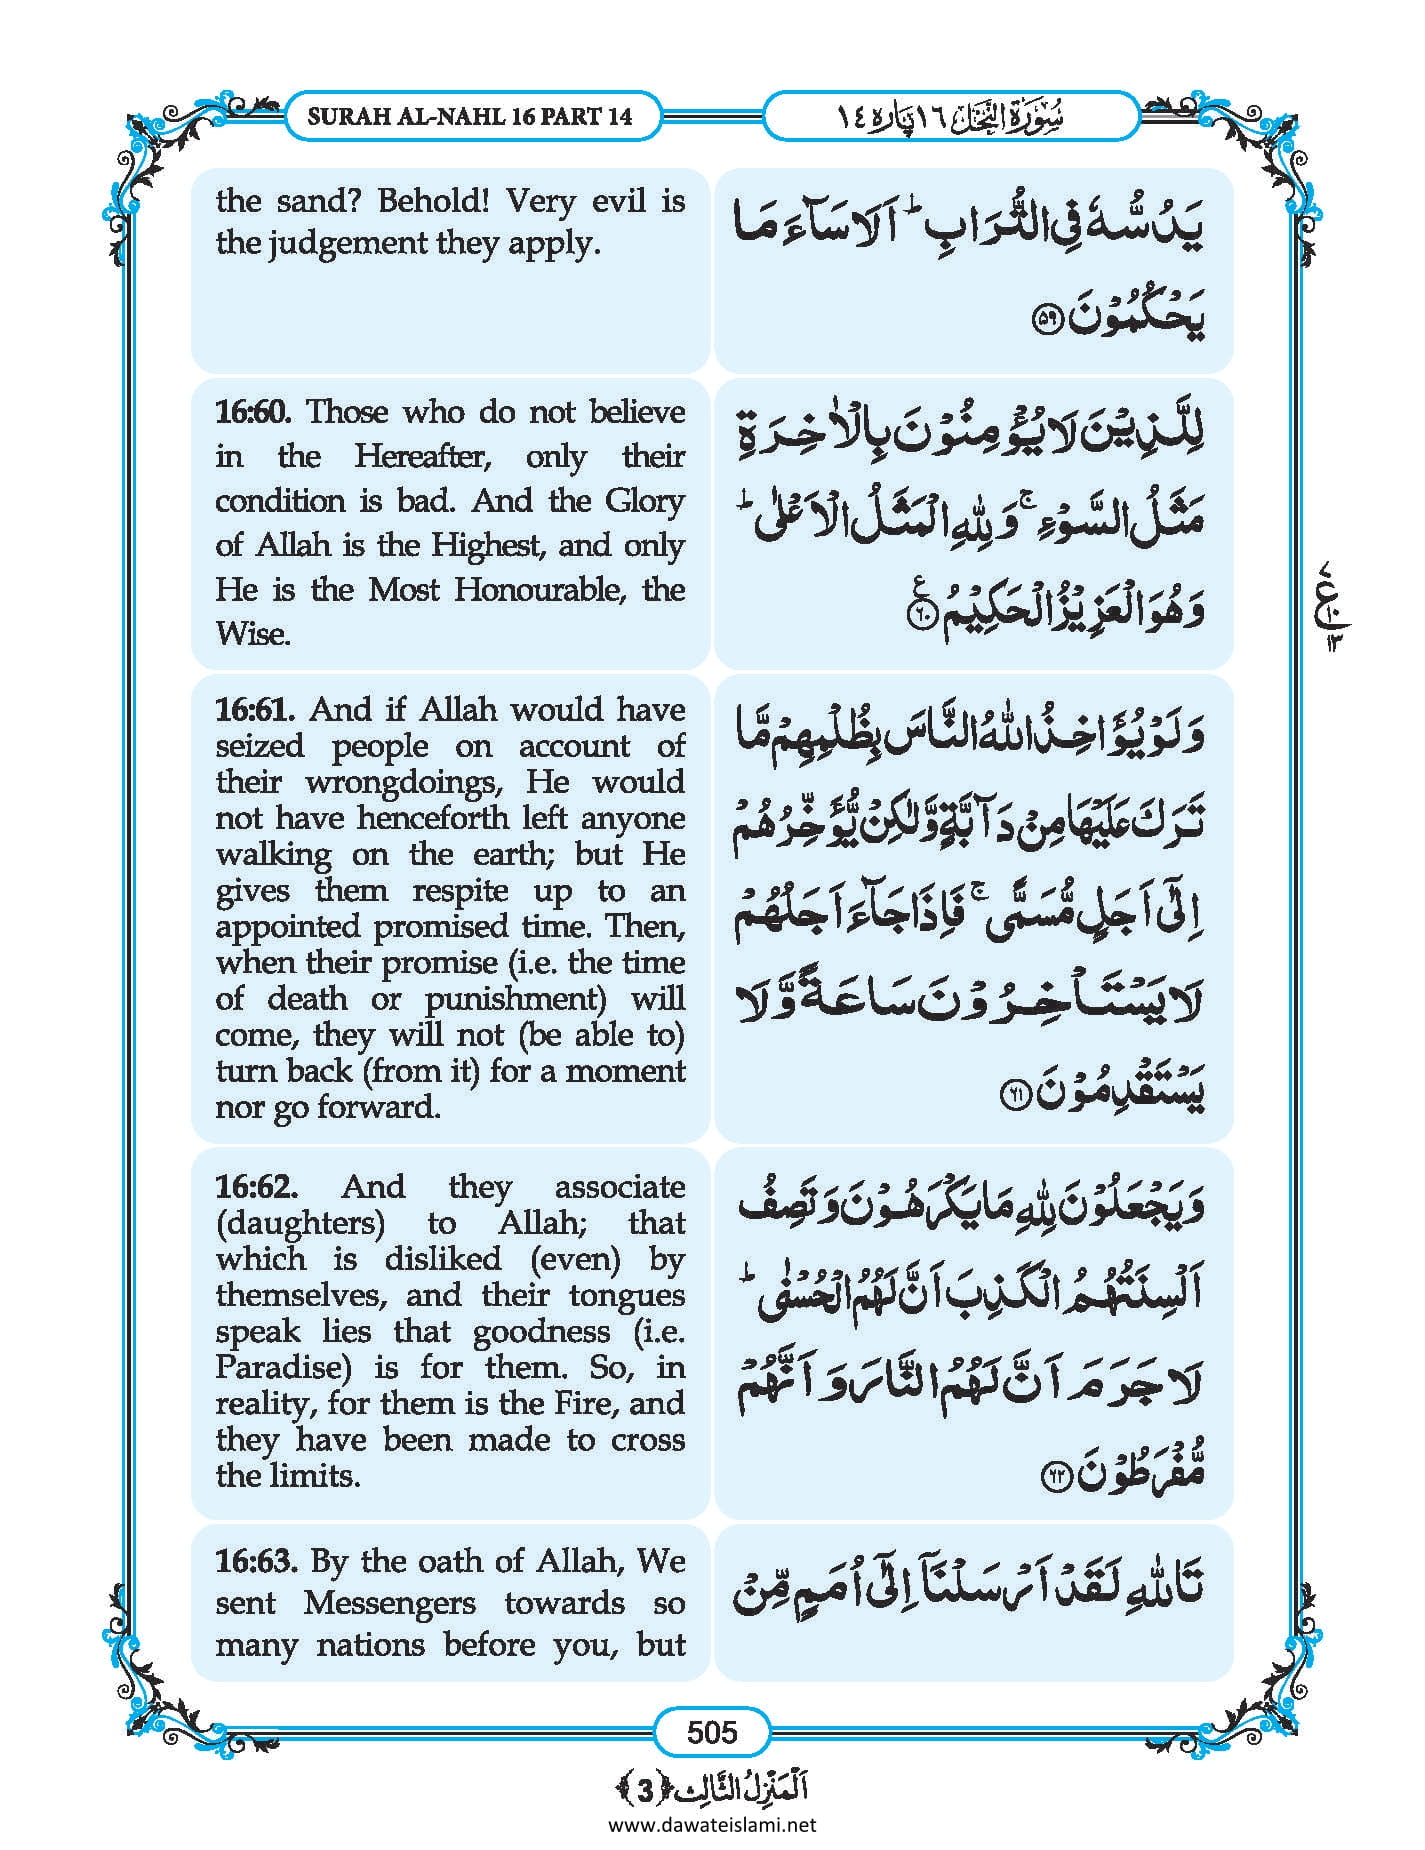 SURAH AL-NAHL 16 PART 14
سُوْرَةُ النَّحْل ١٦ پَارَه ١٤
the sand? Behold! Very evil is
the judgement they apply.
یَدُسُّهٗ فِی التُّرَابِ ؕ اَلَا سَآءَ مَا
یَحْكُمُوْنَ ﴿۵۹﴾
16:60. Those who do not believe
in the Hereafter, only their
condition is bad. And the Glory
of Allah is the Highest, and only
He is the Most Honourable, the
Wise.
لِلَّذِیْنَ لَا یُؤْمِنُوْنَ بِالْاٰخِرَةِ
مَثَلُ السَّوْءِ ۚ وَ لِلّٰهِ الْمَثَلُ الْاَعْلٰی ؕ
وَ هُوَ الْعَزِیْزُ الْحَكِیْمُ ﴿۶۰﴾ ع
16:61. And if Allah would have
seized people on account of
their wrongdoings, He would
not have henceforth left anyone
walking on the earth; but He
gives them respite up to an
appointed promised time. Then,
when their promise (i.e. the time
of death or punishment) will
come, they will not (be able to)
turn back (from it) for a moment
nor go forward.
وَ لَوْ یُؤَاخِذُ اللّٰهُ النَّاسَ بِظُلْمِهِمْ مَّا
تَرَكَ عَلَیْهَا مِنْ دَآبَّةٍ وَّ لٰكِنْ یُّؤَخِّرُهُمْ
اِلٰۤی اَجَلٍ مُّسَمًّی ۚ فَاِذَا جَآءَ اَجَلُهُمْ
لَا یَسْتَاْخِرُوْنَ سَاعَةً وَّ لَا
یَسْتَقْدِمُوْنَ ﴿۶۱﴾
16:62. And they associate
(daughters) to Allah; that
which is disliked (even) by
themselves, and their tongues
speak lies that goodness (i.e.
Paradise) is for them. So, in
reality, for them is the Fire, and
they have been made to cross
the limits.
وَ یَجْعَلُوْنَ لِلّٰهِ مَا یَكْرَهُوْنَ وَ تَصِفُ
اَلْسِنَتُهُمُ الْكَذِبَ اَنَّ لَهُمُ الْحُسْنٰی ؕ
لَا جَرَمَ اَنَّ لَهُمُ النَّارَ وَ اَنَّهُمْ
مُّفْرَطُوْنَ ﴿۶۲﴾
16:63. By the oath of Allah, We
sent Messengers towards so
many nations before you, but
تَاللّٰهِ لَقَدْ اَرْسَلْنَاۤ اِلٰۤی اُمَمٍ مِّنْ
ع
١٠
١٣
505
اَلْمَنْزِلُ الثَّالِث ﴿3﴾
www.dawateislami.net